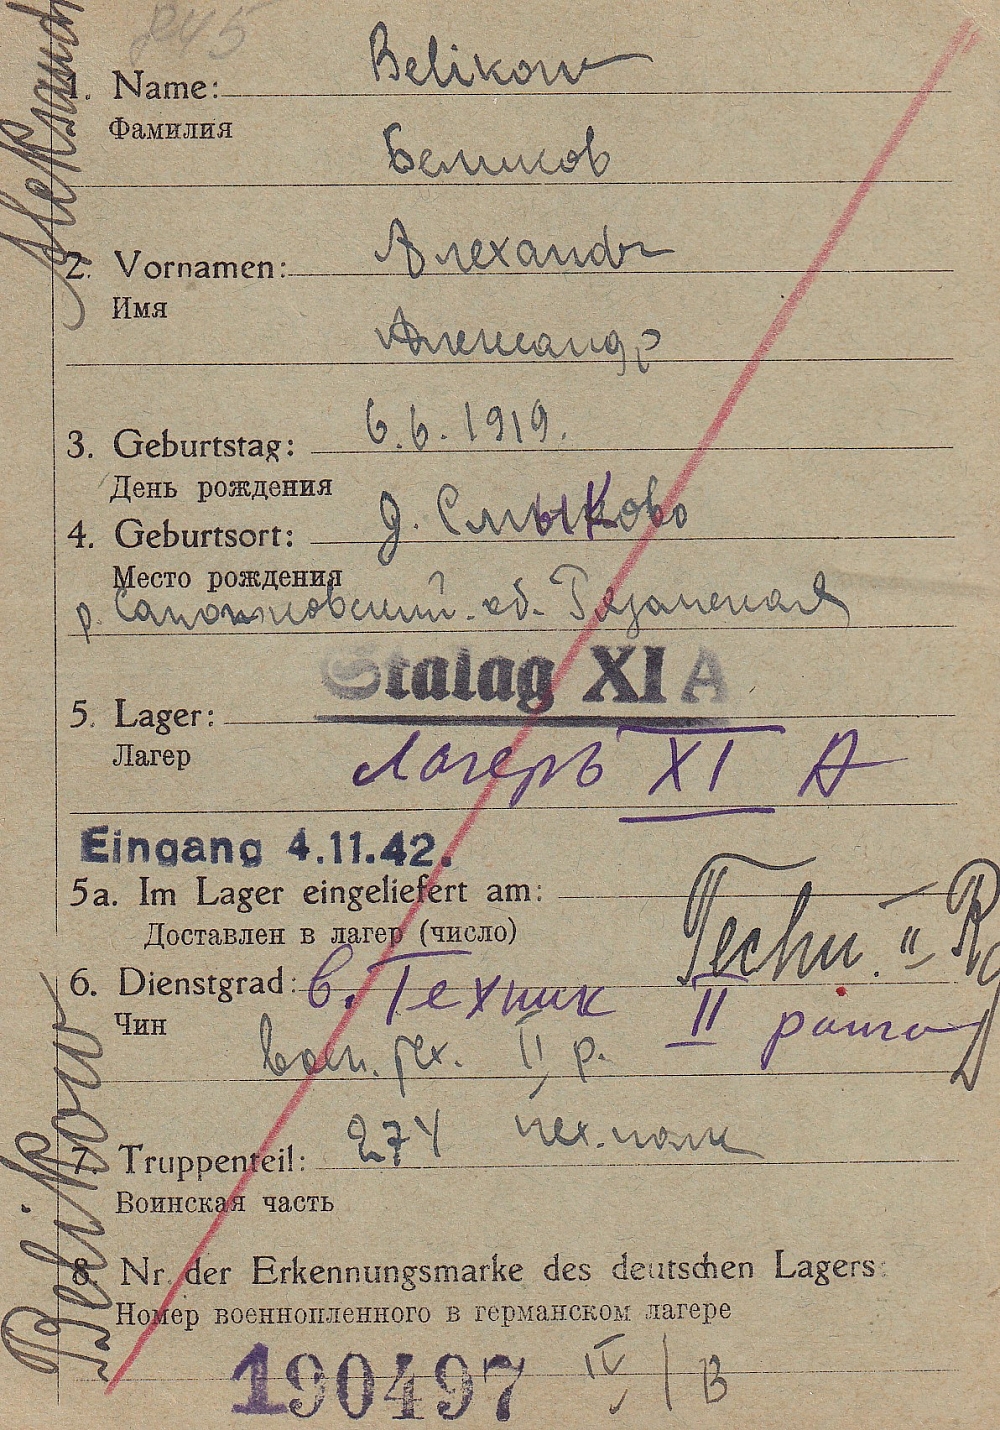 Aleksandr
1. Name: Belikow
Фамилия
Беликов
2. Vornamen: Alexandr
Имя
Александр
3. Geburtstag: 6.6.1919.
День рождения
4. Geburtsort: д. Смыково
Место рождения
р. Сапожковский. об. Рязанская
Stalag XI A
5. Lager:
Лагер
Лагеръ XI A
Eingang 4.11.42.
5a. Im Lager eingeliefert am:
Доставлен в лагер (число)
Techn. II Rg
6. Dienstgrad: в. Техник II ранга
Чин
воен. тех. II р.
274 пех. полк
7. Truppenteil:
Воинская часть
Belikow
8. Nr. der Erkennungsmarke des deutschen Lagers:
Номер военнопленного в германском лагере
190497 IV / B